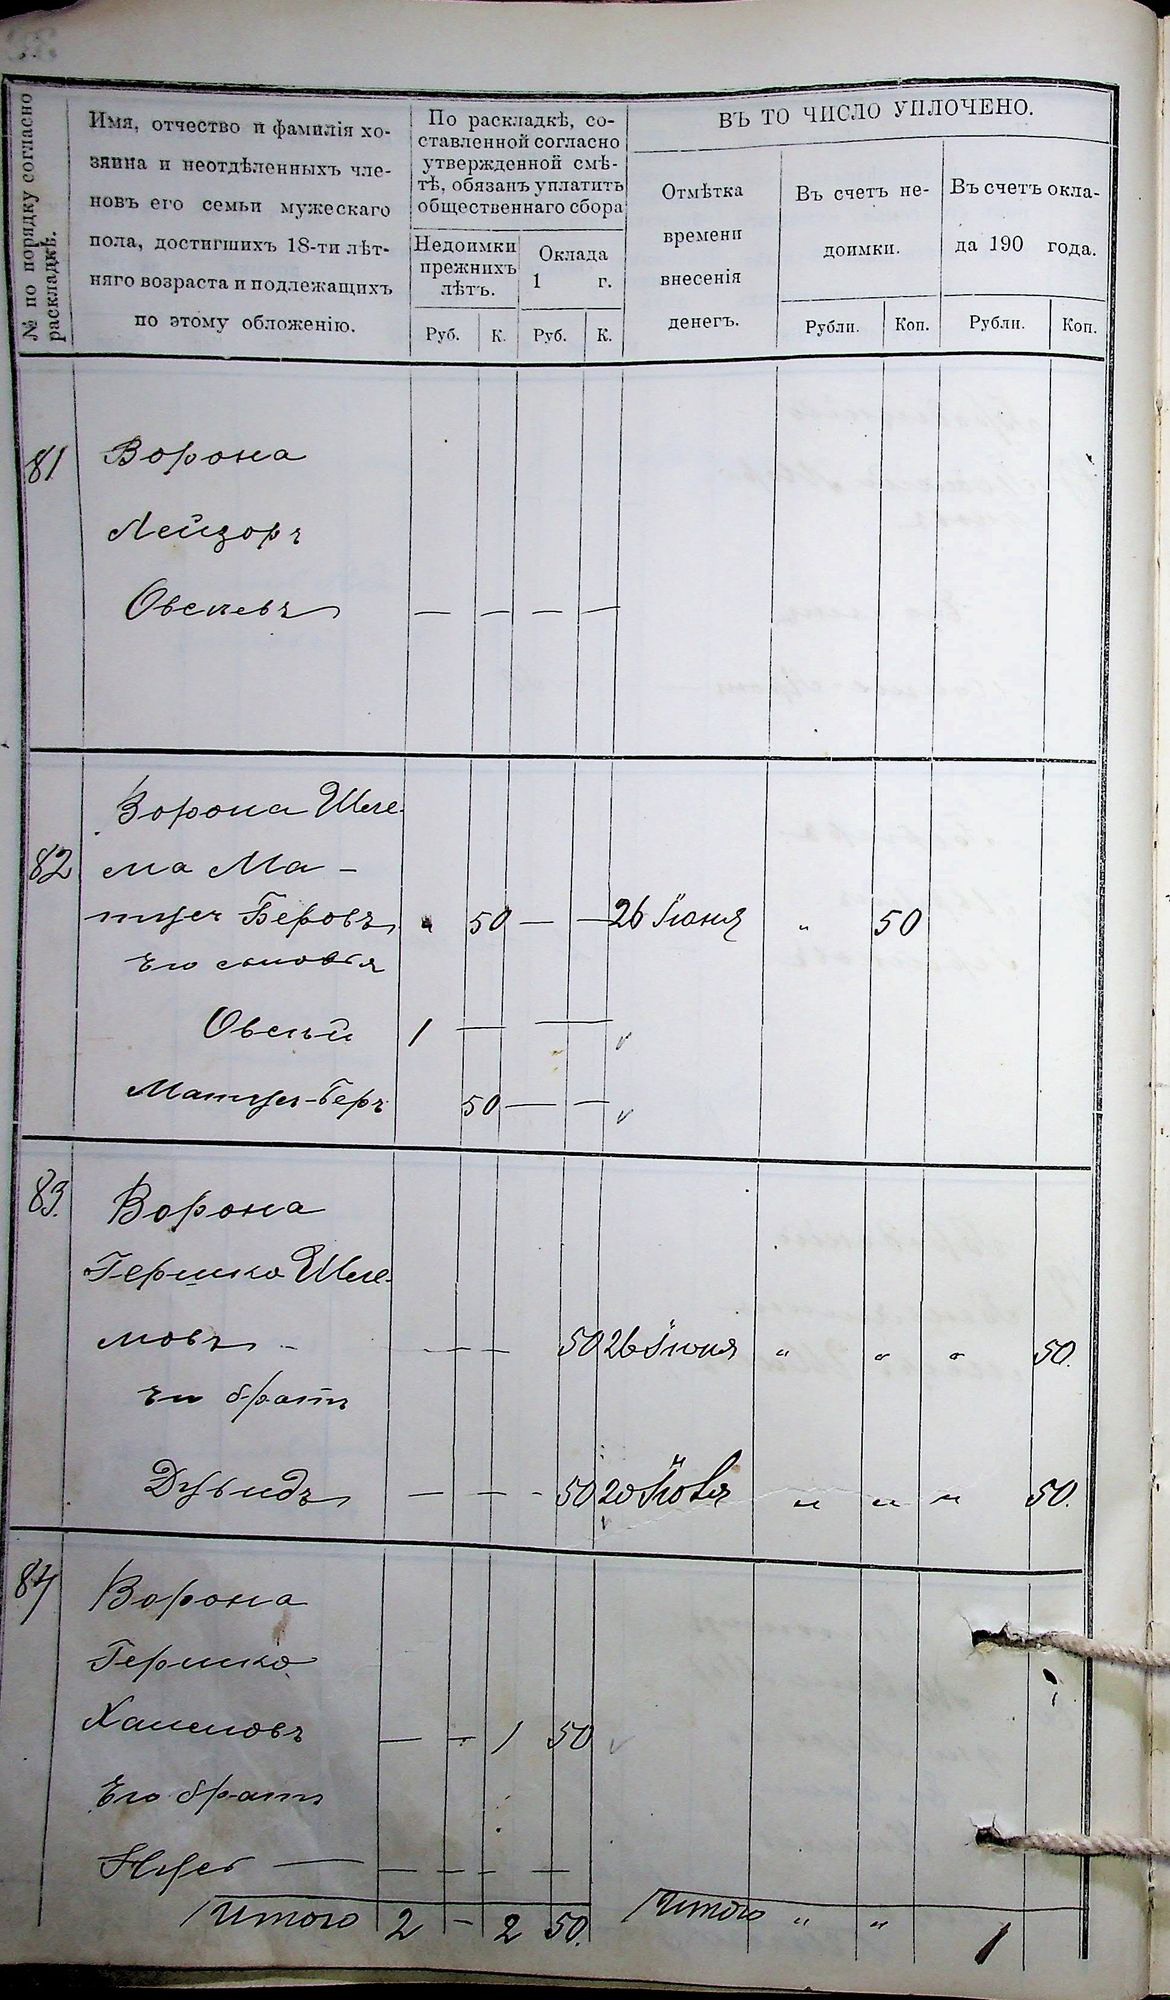 № по порядку согласно
раскладкѣ.
Имя, отчество и фамилія хо-
зяина и неотдѣленныхъ чле-
новъ его семьи мужескаго
пола, достигшихъ 18-ти лѣт-
няго возраста и подлежащихъ
по этому обложенію.
По раскладкѣ, со-
ставленной согласно
утвержденной смѣ-
тѣ, обязанъ уплатить
общественнаго сбора
Недоимки
прежнихъ
лѣтъ.
Оклада
1 г.
Руб. К. Руб. К.
ВЪ ТО ЧИСЛО УПЛОЧЕНО.
Отмѣтка
времени
внесенія
денегъ.
Въ счетъ не-
доимки.
Рубли. Коп.
Въ счетъ окла-
да 190 года.
Рубли. Коп.
81 Ворона
Лейзоръ
Овсеевъ — — — —
Ворона Шле-
82 ма Ма-
тусъ Беровъ „ 50 — — 26 Іюня „ 50
Его сыновья
Овсѣй 1 — —
Матусъ-Беръ 50 — —
83. Ворона
Гершко Шле-
мовъ — — — 50 26 Іюня „ „ „ 50.
его братъ
Дувидъ — — - 50 20 „ „ „ 50.
84 Ворона
Гершко
Хаимовъ — - 1 50
Его братъ
— — - - —
Итого 2 - 2 50. Итого „ „ 1